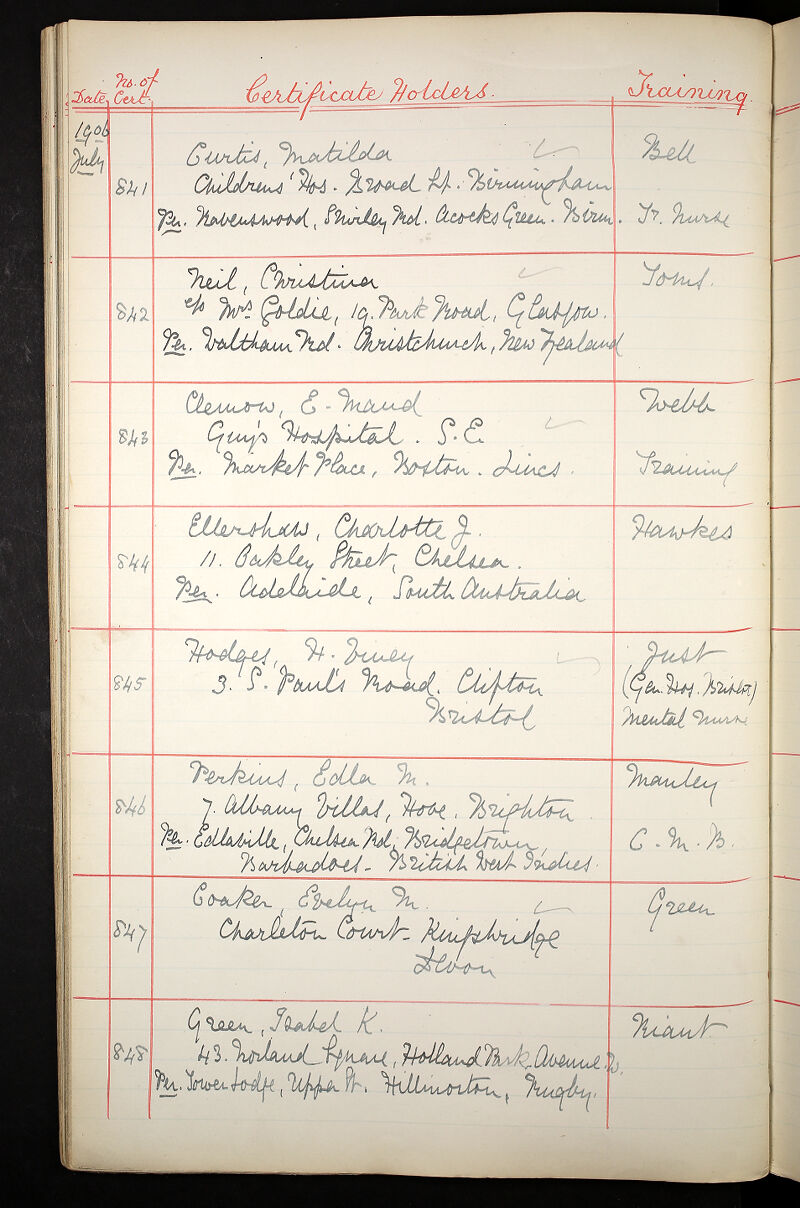 Date No. of Cert. Certificate Holders. Training
1906
July
Curtis, Matilda Bell
841 Childrens' Hos. Broad St. Birmingham
Per. Ravenswood, Shirley Rd. Acocks Green. Birm. Tr. Nurse
Neil, Christina Toms.
842 c/o Mrs Goldie, 19. Park Road, Glasgow.
Per. Waltham Rd. Christchurch, New Zealand
Clemow, E. Maud Webb
843 Guy's Hospital. S.E.
Per. Market Place, Boston. Lincs. Training
Ellershaw, Charlotte J. Hawkes
844 11. Oakley Street, Chelsea.
Per. Adelaide, South Australia
Hodges, H. Viney Just
845 3. S. Paul's Road. Clifton (Gen. Hos. Bristol.)
Bristol Mental Nurse
Perkins, Edla M. Manley
846 7. Albany Villas, Hove. Brighton
Per. Edlaville, Chelsea Rd, Bridgetown, C. M. B.
Barbadoes - British West Indies.
Coaker, Evelyn M. Green
847 Charleton Court - Kingsbridge
Devon
Green, Isabel K. Riant
848 43. Norland Square, Holland Park Avenue. W.
Per. Tower Lodge, Upper St. Hillmorton, Rugby.